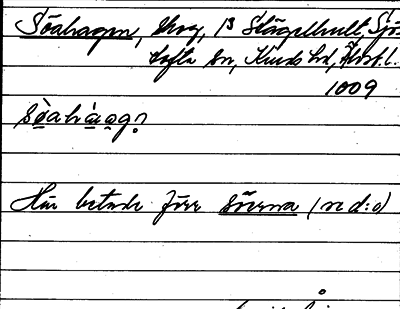 Söahagen, skog, 13 Stägelhult, Sjö-
tofta sn, Kinds hd, Älvsb. l.
1009
sö̀ahá̀gɔ?
Här betade förr söerna (se d:o)